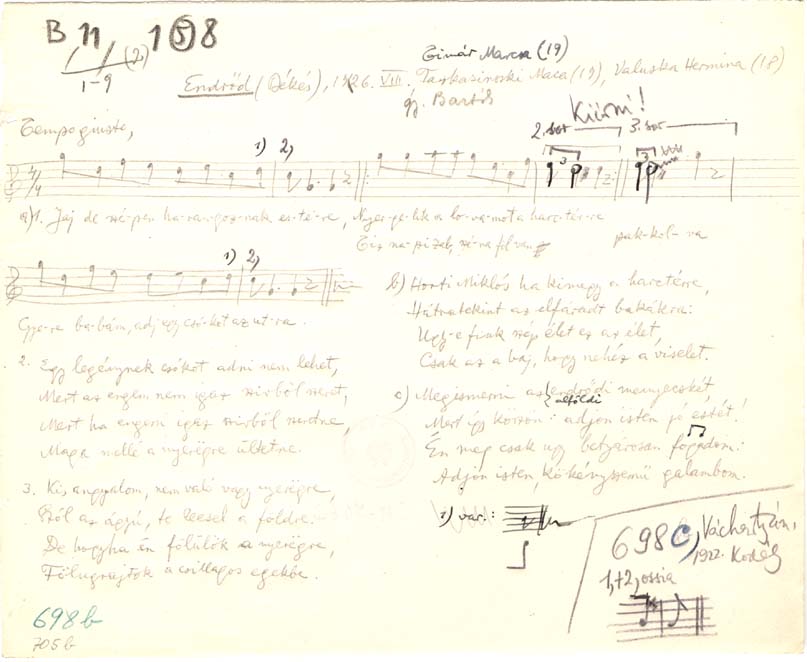 B 11 1508
(2)
1-9
Timár Marcsa (19)
Endrőd (Békés), 1926. VIII., Taskasinszki Maca (19), Valuska Hermina (18)
gy. Bartók
Kiírni!
Tempo giusto,
1) 2,
2. sor 3. sor
a) 1. Jaj de szé-pen ha-ran-goz-nak es-té-re, Nyer-ge-lik a lo-va-mat a harc-tér-re
Tíz na-pi zab, szé-na fel van pak-kol-va
1) 2,
Gye-re ba-bám, adj egy csó-kot az ut-ra.
2. Egy legénynek csókot adni nem lehet,
Mert az engem nem igaz szivből szeret,
Mert ha engem igaz szivből szeretne,
Maga mellé a nyeregre ültetne.
3. Kis angyalom, nem való vagy nyeregre,
Szól az ágyú, te leesel a földre.
De hogyha én fölülök a nyeregre,
Fölugrajtok a csillagos egekbe.
b) Horti Miklós ha kimegy a harctérre,
Hátratekint az elfáradt bakákra:
Ugy-e fiuk szép élet ez az élet,
Csak az a baj, hogy nehéz a viselet.
c) Megismerni az endrődi menyecskét,
alföldi
Mert így köszön: adjon isten jó estét!
Én meg csak ugy betyárosan fogadom:
Adjon isten, kökényszemü galambom.
1) var.:
698 c, Váchartyán,
1922. Kodály
1,+2, ossia
698 b
705 b